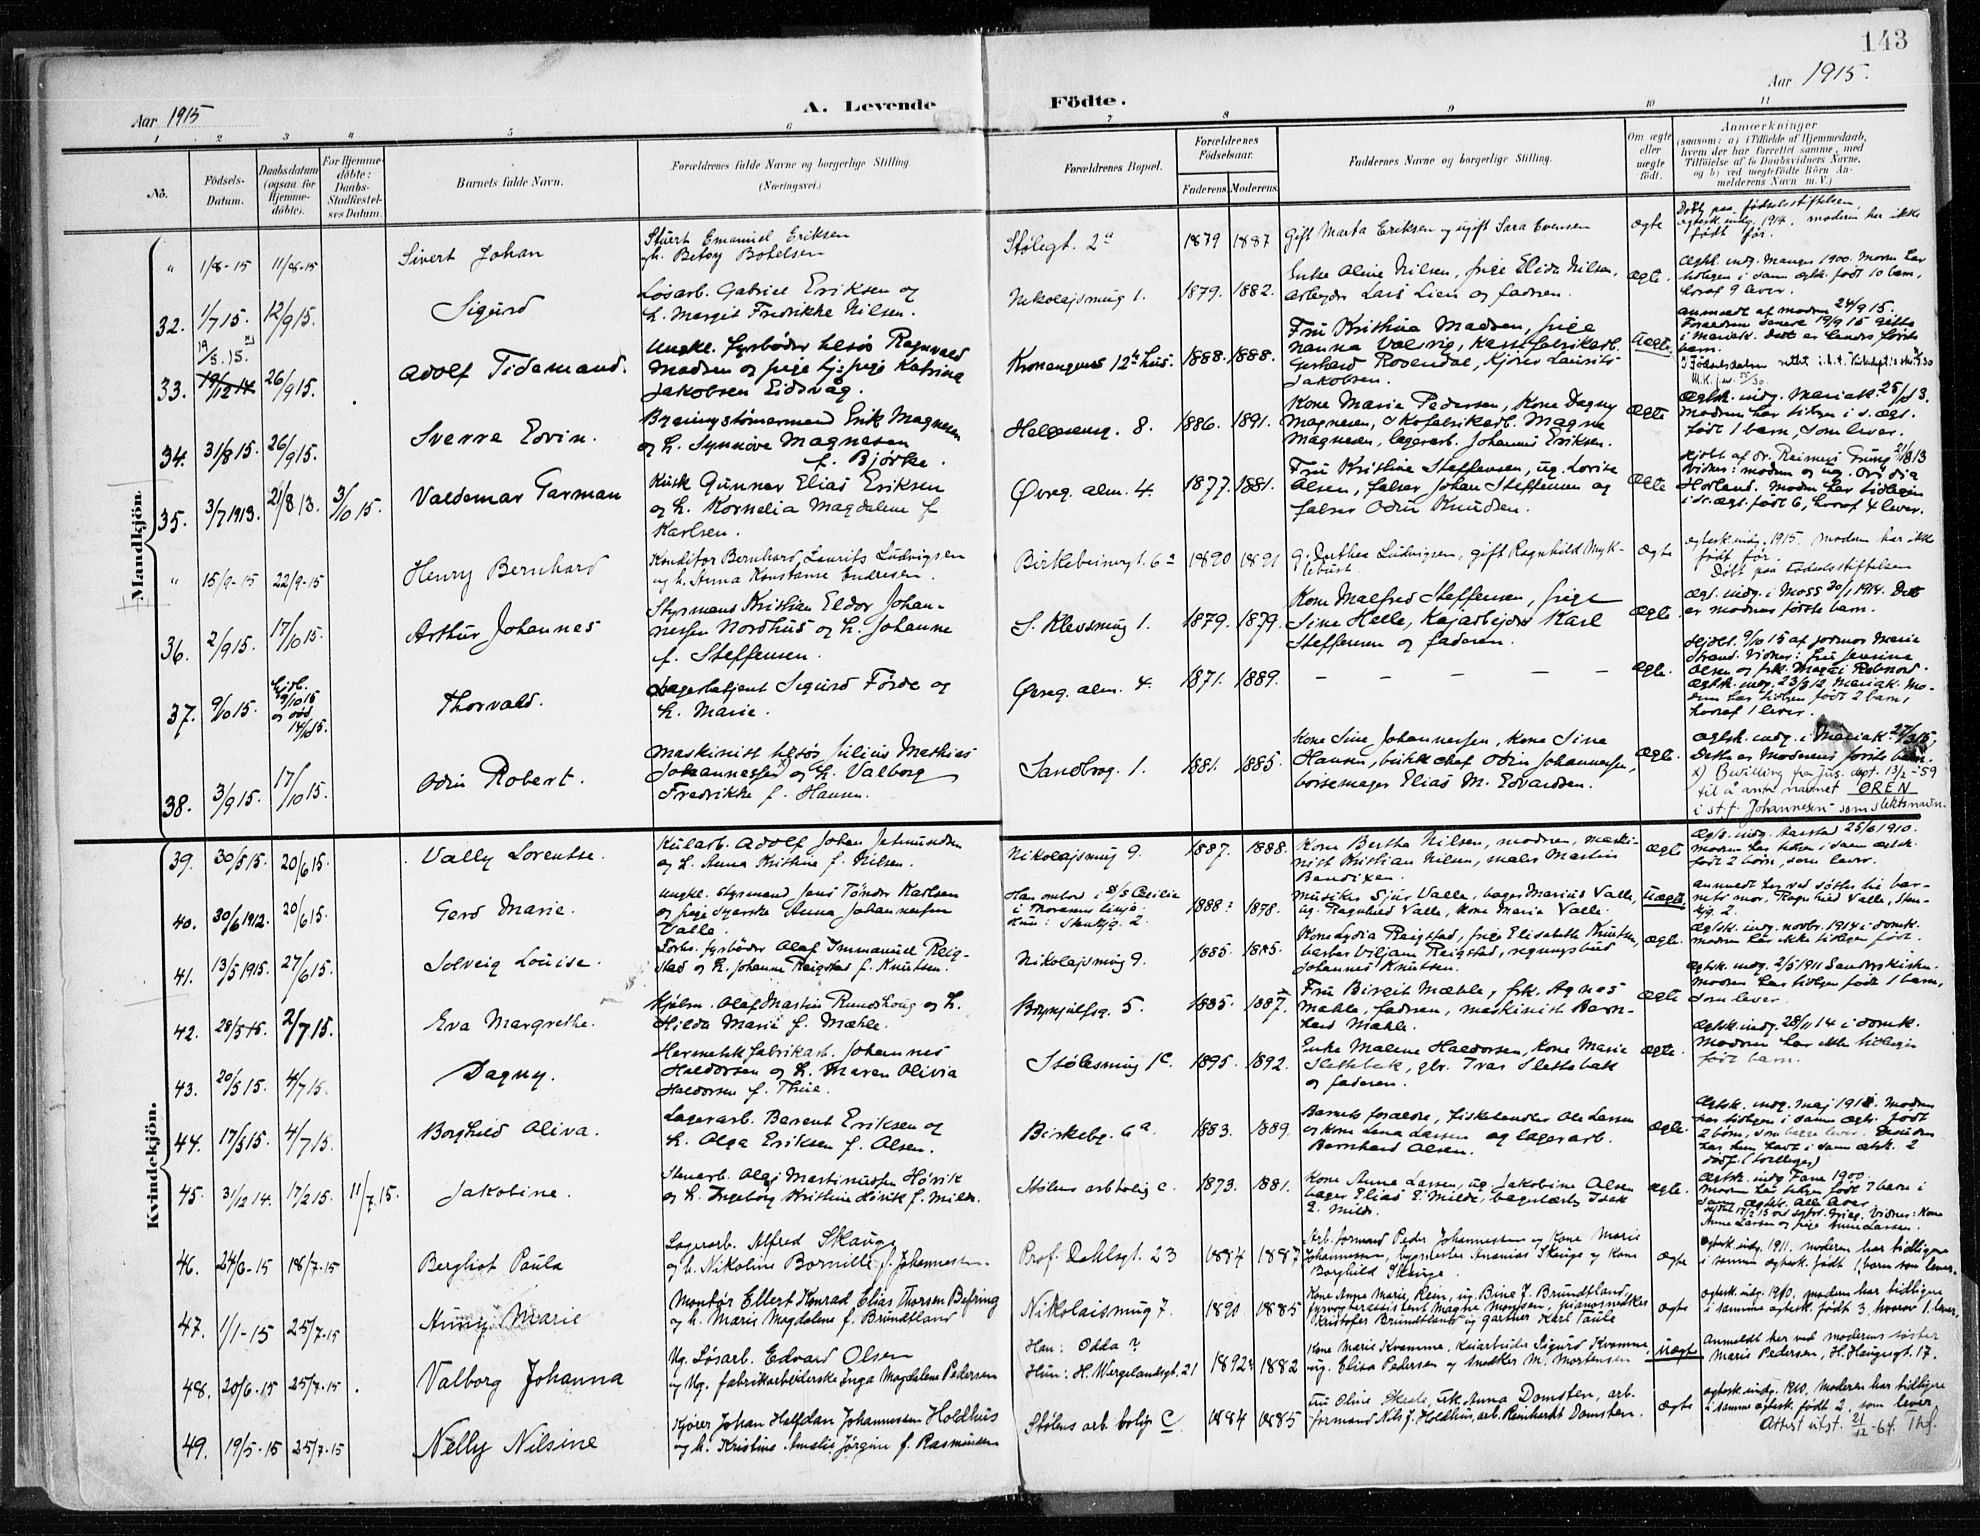 143
Aar 1915
A. Levende
Födte.
Aar 1915.
1 2 3 4 5 6 7 8 9 10 11
No.
Födsels-
Datum.
Daabsdatum
(ogsaa for
Hjemme-
döbte).
For Hjemme-
döbte:
Daabs-
Stadfæstel-
ses Datum.
Barnets fulde Navn.
Forældrenes fulde Navne og borgerlige Stilling
(Næringsvei.)
Forældrenes Bopæl.
Forældrenes
Födselsaar.
Faderens. Moderens.
Faddernes Navne og borgerlige Stilling.
Om ægte
eller
uægte
födt.
Anmærkninger
(saasom: a) i Tilfælde af Hjemmedaab,
hvem der har forrettet samme, med
Tilföielse af to Daabsvidners Navne,
og b) ved uægtefödte Börn An-
melderens Navn m. V.)
Mandkjön.
" 1/8-15 11/8-15 Sivert Johan
Stuert Emanuel Eriksen
og h. Betsy Botelsen
Stølegt. 2a 1879 1887
Gift Marta Eriksen og ugift Sara Evensen
ægte
Døbt paa fødselsstiftelsen.
ægtesk. indg. 1914. moderen har ikke
født før.
32. 1/7 15. 12/9 15. Sigurd
Løsarb. Gabriel Eriksen og
h. Margit Fredrikke Nilsen.
Nikolajsmug 1. 1879. 1882.
Enke Oline Nilsen, frøge Elida Nilsen,
arbejder Lars Lien og faderen.
ægte.
Ægtsk. indg. Manger 1900. Moren har
tidligen i samm ægtsk. født 10 barn,
hvoraf 9 lever.
33. 19/12 14 19/5 15. 26/9 15. Adolf Tidemand.
Ungkl. fyrbøder Ragnvald
Madsen og pige Katrina
Jakobsen Eidsvåg.
Kronengens 12te hus. 1888. 1888.
Fru Kristina Madsen, pige
Nanna Valsvig, Kassefabrikarb.
Gerhard Rosendal, Kjører Laurits
Jakobsen.
Uægte.
anmeldt af modren 24/9 15.
Forældrene senere 19/9 15 gifte
i Mariak. Dette er hendes første
barn.
34. 31/8 15. 26/9 15. Sverre Edvin.
Erik Magnesen
og h. Synnøve Magnesen
f. Bjørke.
Hellesmug. 8. 1886. 1891.
Kone Marie Pedersen, Kone Dagny
Magnesen, Skofabrikarb. Magne
Magnesen, lagerarb. Johannes Eriksen.
Ægte
Ægtsk. indg. Mariak 25/ 13.
Modren har tidligen i s. ægt.
født 1 barn, som lever.
35. 3/7 1913. 21/8 13. 3/10 15. Valdemar Garman
Kusk Gunnar Elias Eriksen
og h. Kornelia Magdalene f.
Karlsen.
Øvreg. alm. 4. 1877. 1881.
Fru Kristine Steffensen, ug. Lovise
Olsen, falser Johan Steffensen og
falser Odin Knudsen.
Ægte
Hjdbt. af dr. Reimers Grung 21/8 13
Vidner: modren og ug. Ovidia
Hovland. Modren har tidligen
i s. ægt. født 6, hvoraf 4 lever.
" 15/9-15 22/9-15 Henry Bernhard
Konditor Bernhard Laurits Ludvigsen
og h. Anna Konstanse Endresen.
Birkebeinergt. 6a 1890 1891
G. Dorthea Ludvigsen, gift Ragnhild Myk-
lebust.
Ægte
ægtesk. indg. 1915. moderen har ikke
født før.
Døbt paa Fødselsstiftelsen
36. 2/9 15. 17/10 15. Arthur Johannes
Styrmand Kristian Eldor Johan-
nessen Nordhus og h. Johanne
f. Steffensen.
S. Klevsmug 1. 1879. 1879.
Kone Malfred Steffensen, pige
Sine Helle, Kajarbejder Karl
Steffensen og faderen.
Ægte.
Ægt. indg. i Moss 20/1 1914. Dette
er modrens første barn.
37. 9/10 15. hjdb.
9/10 15
og død
14/10 15. Thorvald.
Lagerbetjent Sigurd Førde og
h. Marie.
Øvreg. alm. 4. 1871. 1889. – – – – –
Ægte.
Hjdbt. 9/10 15 af jordmor Marie
Strand. Vidner: fru Severine
Olsen og frk. Magda
Ægtsk. indg. 23/3 12 Mariak. Mo-
dren har tidligen født 2 barn,
hvoraf 1 lever.
38. 3/9 15. 17/10 15. Odin Robert.
Maskinist Julius Mathias
Johannessen og h. Valborg
Fredrikke f. Hansen.
Sandbrog. 1. 1881. 1885.
Kone Sine Johannessen, Kone Sine
Hansen, butikchef Odin Johannessen,
børsemager Elias M. Edvardsen.
ægte.
Ægtsk. indg. i Mariak.
Dette er Moderens første barn.
x) Bevilling fra Jus. dept. 13/2-59
til å anta navnet ØREN
i st. f. Johannesen som slektsnavn.
Kvindekjön.
39. 30/5 15. 20/6 15. Vally Lorentse.
Kularb. Adolf Johan Jetmundsen
og h. Anna Kristine f. Nilsen.
Nikolajsmug 9. 1887. 1888.
Kone Bertha Nilsen, modren, maski-
nist Kristian Nilsen, maler Martin
Bendixen.
ægte
Ægts. indg. Aarstad 25/6 1910.
Modren har tidligen i samm ægtsk.
født 2 børn, som lever.
40. 30/6 1912. 20/6 15. Gerd Marie.
Ungkl. styrmand Jens Tønder Karlsen
og pige Syerske Anna Johannessen
Valle.
Han ombord i S/S Cecilie
Hun: Skutvg. 2. 1888? 1878.
Musiker Sjur Valle, bager Marius Valle,
ug. Ragnhild Valle, Kone Marie Valle.
Uægte.
anmeldt her ved søster til bar-
nets mor, Ragnhild Valle,
41. 13/5 1915. 27/6 15. Solveig Louise.
Forhv. fyrbøder Olaf Immanuel Reig-
stad og h. Johanne Reigstad f. Knutsen.
Nikolajsmug 9. 1885. 1885.
Kone Lydia Reigstad, pige Elisabeth Knutsen,
barber Viljam Reigstad, regningsbud
Johannes Knutsen.
Ægte.
Ægtsk. indg. novbr. 1914 i domk.
Modren har ikke tidligen født.
42. 28/5 15. 2/7 15. Eva Margrethe.
Kjelsm. Olaf Martin Rundhoug og h.
Hilda Marie f. Mæhle.
5. 1885. 1887.
Fru Birgit Mæhle, frk. Agnes
Mæhle, fadren, maskinist Bern-
hard Mæhle.
ægte
Ægtsk. indg. 2/5 1911 Sandvikskirken.
Modren har tidligen født 1 barn,
som lever.
43. 20/5 15. 4/7 15. Dagny.
Hermetik fabrikarb. Johannes
Haldorsen og h. Maren Olivia
Haldorsen f. Thue.
Stølesmug 1c. 1895. 1892.
Enke Malene Haldorsen, Kone Marie
Slettebak, glr. Ivar Slettebak
og faderen.
ægte.
Ægtsk. indg. 28/11 14 i domk.
Modren har ikke tidligen
født barn.
44. 17/5 15. 4/7 15. Borghild Oliva.
Lagerarb. Berent Eriksen og
h. Olga Eriksen f. Olsen.
Birkebg. 6a. 1883. 1889.
Barnets forældre, fiskehandler Ole Larsen
og kone Lena Larsen og lagerarb.
Bernhard Olsen.
ægte.
Ægtsk. indg. maj 191 . Modren
har tidligen i samm ægts. født
2 børn, som begge lever. Desuden
har hun havt i samm ægtsk. 2
dødf. (tvillinger)
45. 31/12 14. 17/2 15. 11/7 15. Jakobine.
Stenarb. Olai Martinussen Høivik
og h. Ingeborg Kristine Høivik f. Milde.
Stølens arb bolig c. 1873. 1881.
Kone Anne Larsen, ug. Jakobine Olsen
bager Elias E. Milde, bagerlærl. Isak
E. Milde.
ægte.
Ægtsk. indg. Fane 1900.
Modren har tidligen født 7 barn i
samm ægtsk. Alle lever.
Hjdbt 17/2 15 ved Grieg. Vidner: Kone
Anne Larsen og pige Anna Larsen.
46. 24/6-15 18/7-15 Bergliot Paula
Lagerarb. Alfred Skauge
og h. Nikoline Bornille f. Johannessen.
Prof. Dahlsgt. 23 1884 1887
Arb. formand Peder Johannessen og Kone Marie
Johannessen, bygmester Ananias Skauge og Kone
Borghild Skauge.
ægte
ægtesk. indg. 1911. moderen har tidligere
i samme ægtesk. født 1 barn som lever.
47. 1/1-15 25/7-15 Anny Marie
Montør Ellert Konrad Elias Thorsen Befring
og h. Marie Magdalene f. Brundtland
Nikolaismug 7 1890 1885
Kone Anne Marie Rein, ug. Bina J. Brundtland,
fyrvogterassistent Magne Monsen, pianosnekker
Kristofer Brundtland og gartner Karl Taule
ægte
ægtesk. indg. 1910, moderen har tidligere
i samme ægtesk. født 3 hvorav 1 lever.
48. 20/6-15 25/7-15 Valborg Johanna
Ug. Løsarb. Edvard Olsen
og Ug. fabrikarbeiderske Inga Magdalene Pedersen
Han: Odda?
Hun: H. Wergelandsgt. 21 1892? 1882
Kone Marie Kvamme, Kaiarbeider Sigurd Kvamme,
ug. Elisa Pedersen og snekker M. Mortensen
uægte
Anmeldt her ved moderens søster
Marie Pedersen, H. Haugesgt. 17.
49. 19/5-15 25/7-15 Nelly Nilsine
Kjører Johan Halfdan Johannessen Holdhus
og h. Kristine Amalie Jørgine f. Rasmussen
Stølens arb. bolig C 1884 1885
Fru Oline Skade, frk. Anna Domsten, arb.
formand Nils J. Holdhus, arb. Reinhardt Domsten.
ægte
ægtesk. indg. 1910, Moderen har tidligere
i samme ægtesk. født 2, som lever
Attest utst. 21/12-64. Thf.